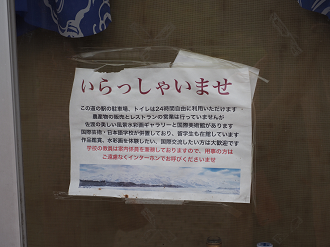 いらっしゃいませ
この道の駅の駐車場、トイレは24時間自由に利用いただけます
農産物の販売とレストランの営業は行っていませんが
佐渡の美しい風景水彩画ギャラリーと国際美術館があります
国際芸術・日本語学校が併置しており、留学生も在籍しています
作品鑑賞、水彩画を体験したい、国際交流したい方は大歓迎です
学校の教員は案内係員を兼務しておりますので、用事の方は
ご遠慮なくインターホンでお呼びくださいませ